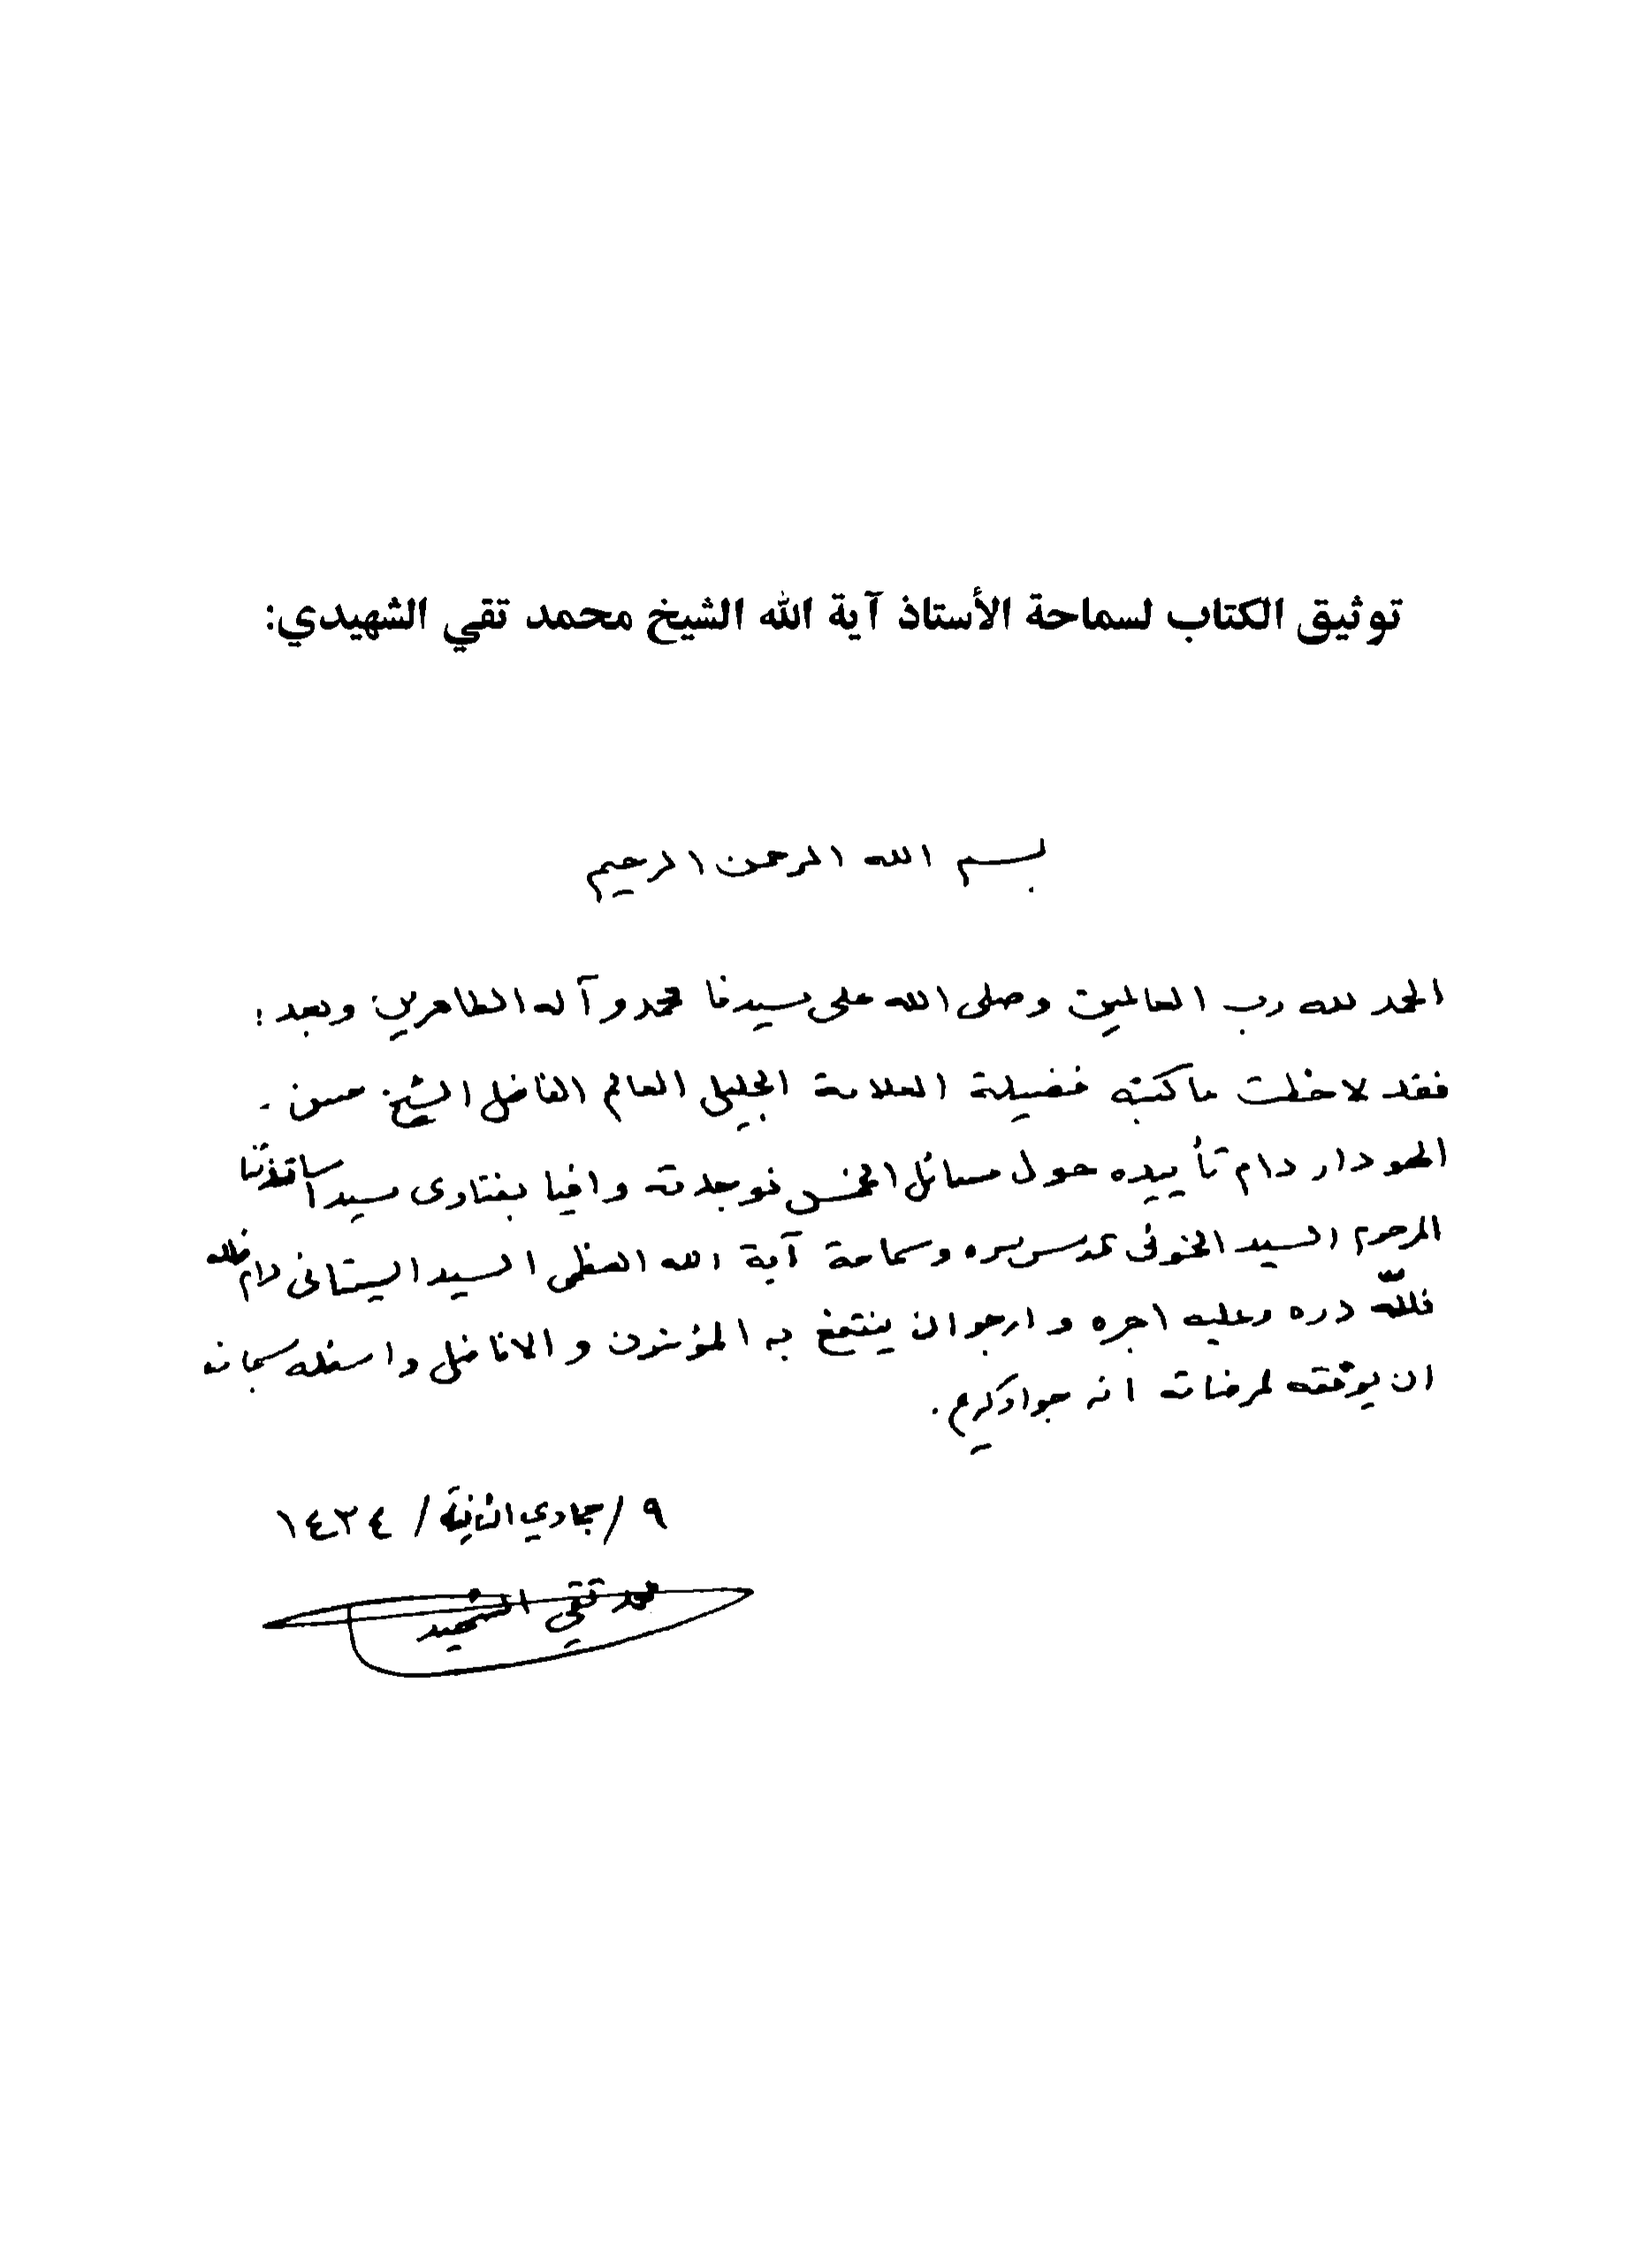 توثيق الكتاب لسماحة الأستاذ آية الله الشيخ محمد تقي الشهيدي:
بسم الله الرحمن الرحيم
الحمد لله رب العالمين وصلى الله على سيدنا محمد وآله الطاهرين وبعد:
فقد لاحظت ما كتبه فضيلة العلامة الجليل العالم الفاضل الشيخ حسن
الهودار دام تأييده حول مسائل الخمس فوجدته وافيا بفتاوى سيد اساتذتنا
المرحوم السيد الخوئى قدس سره وسماحة آية الله العظمى السيد السيستانى دام ظله
فللّه دره وعليه اجره وارجو ان ينتفع به المؤمنون والافاضل واسئله سبحانه
ان يوفقه لمرضاته انه جواد كريم.
٩ / جمادي الثانية / ١٤٣٤
محمد تقي الشهيدي